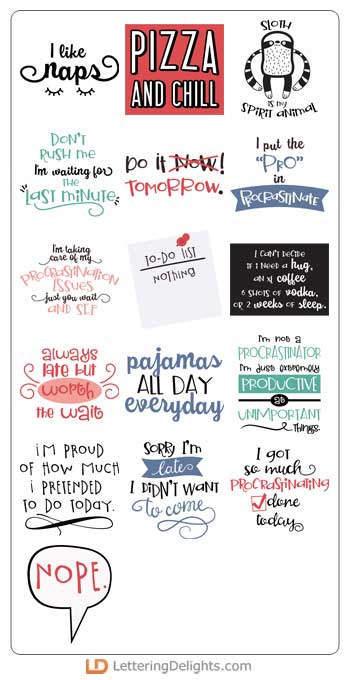 I like
naps
PIZZA
AND CHILL
SLOTH
is my
SPIRIT ANIMAL
DON'T
RUSH ME
I'm waiting for
the
LAST MINUTE
DO IT NOW!
TOMORROW.
I PUT THE
"PRO"
in
PROCRASTINATE
I'm taking
care of my
PROCRASTINATION
ISSUES
just you wait
AND SEE
TO-DO LIST
NOTHING
I CAN'T DECIDE
IF I NEED A hug,
AN XL COFFEE
6 SHOTS OF VODKA,
OR 2 WEEKS OF SLEEP.
always
late but
worth
the wait
pajamas
ALL DAY
everyday
I'M NOT A
PROCRASTINATOR
I'm just extremely
PRODUCTIVE
at
UNIMPORTANT
things.
I'M PROUD
OF HOW MUCH
I PRETENDED
TO DO TODAY.
SORRY I'M
late
I DIDN'T WANT
to come
I GOT
so much
PROCRASTINATING
done
today
NOPE.
LD LetteringDelights.com